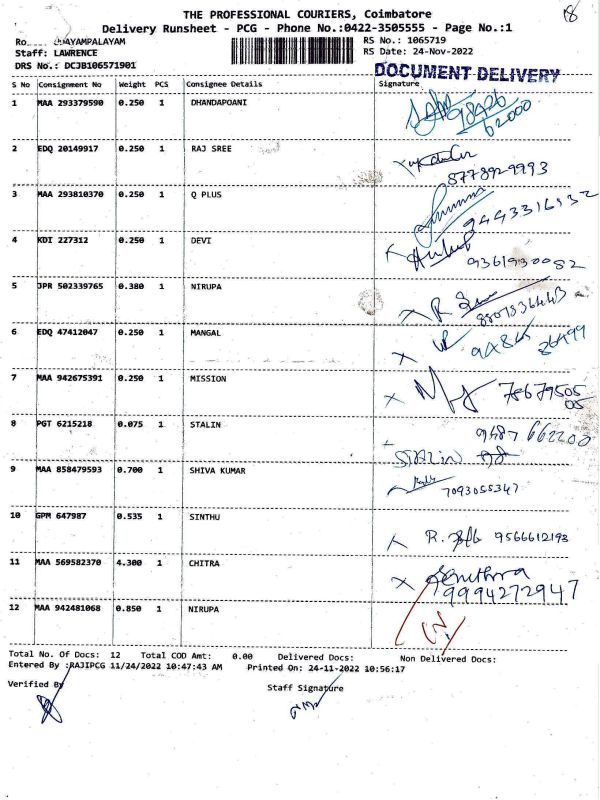 THE PROFESSIONAL COURIERS, Coimbatore
Delivery Runsheet - PCG - Phone No.:0422-3505555 - Page No.:1
18
RS No.: 1065719
Staff: LAWRENCE
RS Date: 24-Nov-2022
DRS No.: DCJB106571901
DOCUMENT DELIVERY
S No Consignment No Weight PCS Consignee Details Signature
1 MAA 293379590 0.250 1 DHANDAPOANI
62000
2 EDQ 20149917 0.250 1 RAJ SREE
8778929993
3 MAA 293810370 0.250 1 Q PLUS
9443316932
4 KDI 227312 0.250 1 DEVI
9361930082
5 JPR 502339765 0.380 1 NIRUPA
6 EDQ 47412047 0.250 1 MANGAL
7 MAA 942675391 0.250 1 MISSION
78679505
05
8 PGT 6215218 0.075 1 STALIN
9487 662200
STALIN
9 MAA 858479593 0.700 1 SHIVA KUMAR
7093055347
10 GPM 647987 0.535 1 SINTHU
R. 9566612193
11 MAA 569582370 4.300 1 CHITRA
9994272947
12 MAA 942481068 0.850 1 NIRUPA
Total No. Of Docs: 12 Total COD Amt: 0.00 Delivered Docs: Non Delivered Docs:
Entered By :RAJIPCG 11/24/2022 10:47:43 AM Printed On: 24-11-2022 10:56:17
Verified By
Staff Signature